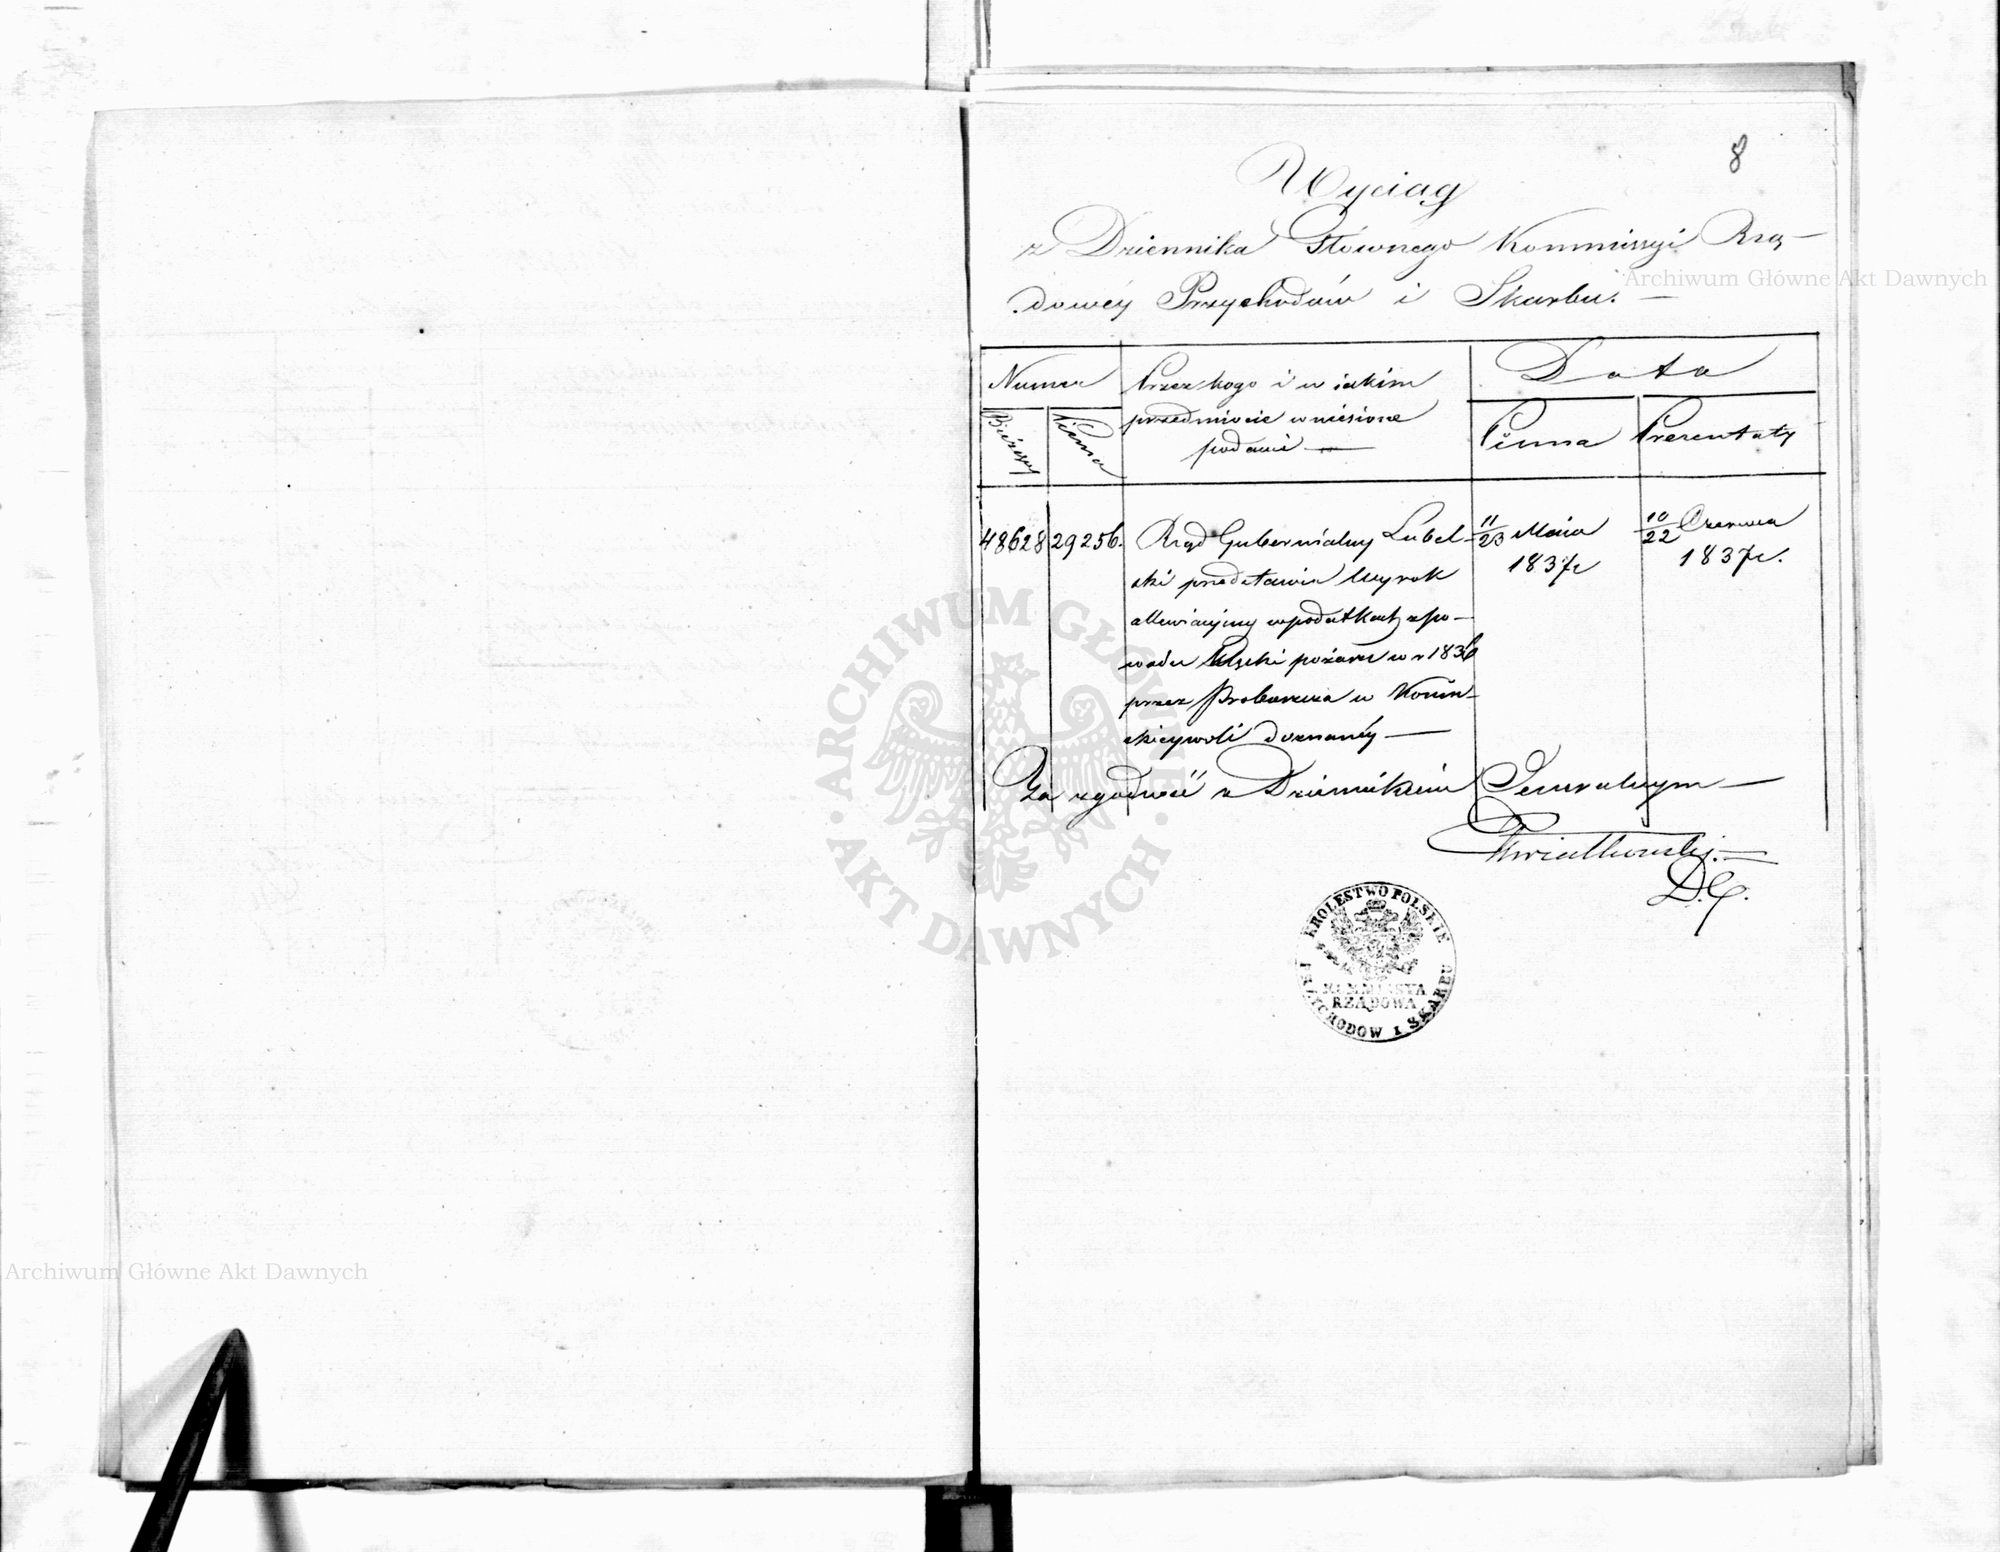 8
Wyciąg
z Dziennika Głównego Kommissyi Rzą-
dowéy Przychodów i Skarbu. —
Numer
Bieżący
Pisma
Przez kogo i w iakim
przedmiocie wniesione
podanie —
Data
Pisma
Prezentaty
48628
29256.
Rząd Gubernialny Lubel-
ski przedstawia Wyrok
allewiacyiny w podatkach z po-
wodu klęski pożaru w r 1836
przez Proboszcza w Koniń-
skieywoli doznanéy —
11/23 Maia
1837r
10/22 Czerwca
1837r.
Za zgodność z Dziennikiem Generalnym —
Kwiatkowski. —
KRÓLESTWO POLSKIE
KOMMISSYA
RZĄDOWA
PRZYCHODOW I SKARBU
Archiwum Główne Akt Dawnych
ARCHIWUM GŁÓWNE
AKT DAWNYCH
Archiwum Główne Akt Dawnych